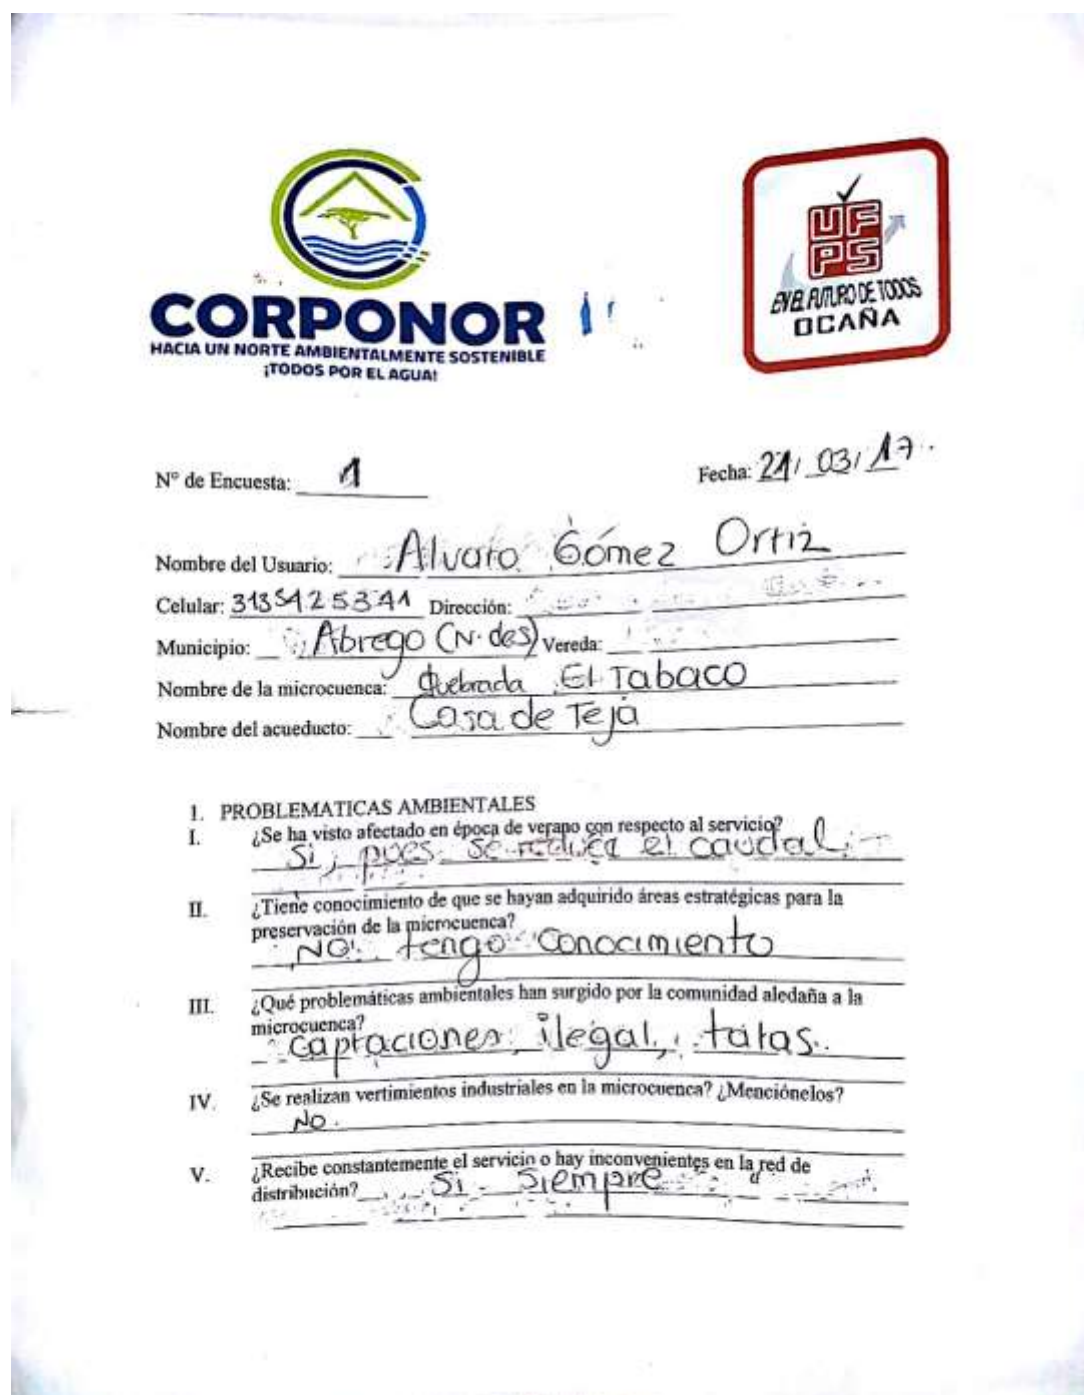 CORPONOR
HACIA UN NORTE AMBIENTALMENTE SOSTENIBLE
¡TODOS POR EL AGUA!
UF
PS
EN EL FUTURO DE TODOS
OCAÑA
N° de Encuesta: 1
Fecha: 21/03/17.
Nombre del Usuario: Alvaro Gómez Ortiz
Celular: 3135425341 Dirección:
Municipio: Abrego (N. des) Vereda:
Nombre de la microcuenca: Quebrada El Tabaco
Nombre del acueducto: Casa de Teja
1. PROBLEMATICAS AMBIENTALES
I. ¿Se ha visto afectado en época de verano con respecto al servicio?
Si, pues se reduce el caudal.
II. ¿Tiene conocimiento de que se hayan adquirido áreas estratégicas para la
preservación de la microcuenca?
NO tengo conocimiento
III. ¿Qué problemáticas ambientales han surgido por la comunidad aledaña a la
microcuenca?
captaciones ilegal, talas.
IV. ¿Se realizan vertimientos industriales en la microcuenca? ¿Menciónelos?
No.
V. ¿Recibe constantemente el servicio o hay inconvenientes en la red de
distribución? Si siempre